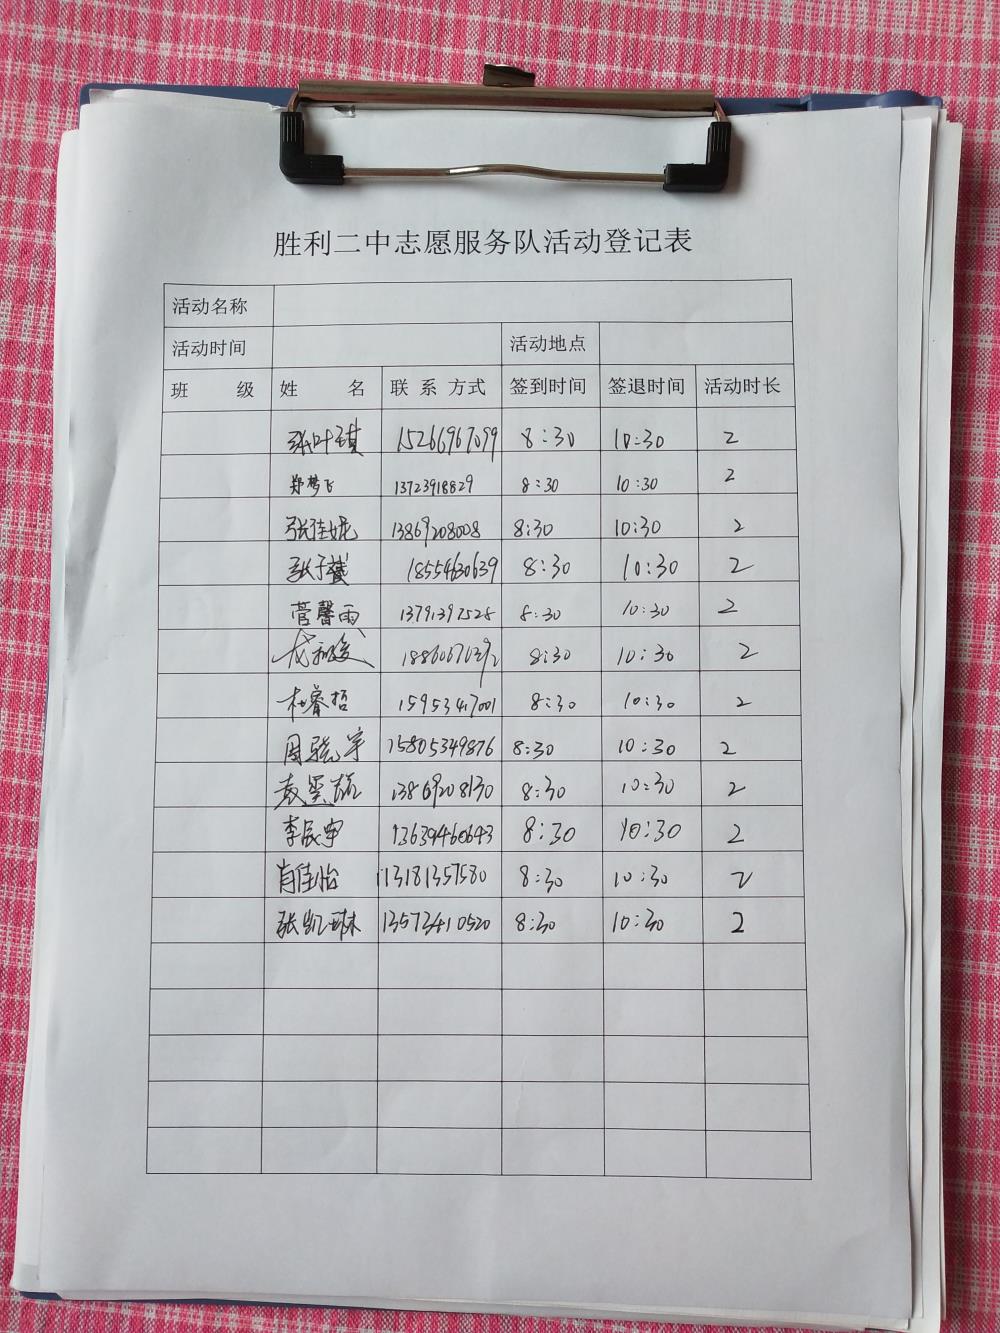 胜利二中志愿服务队活动登记表
活动名称
活动时间 活动地点
班 级 姓 名 联 系 方式 签到时间 签退时间 活动时长
张叶祺 15266967099 8:30 10:30 2
郑梦飞 13723918829 8:30 10:30 2
张佳妮 13869208008 8:30 10:30 2
张子 18554630639 8:30 10:30 2
菅馨雨 13791397528 8:30 10:30 2
8:30 10:30 2
杜睿哲 15953417001 8:30 10:30 2
周骁宇 15805349876 8:30 10:30 2
13869208130 8:30 10:30 2
李辰宇 13639460643 8:30 10:30 2
肖佳怡 13181357580 8:30 10:30 2
张凯琳 13573410520 8:30 10:30 2